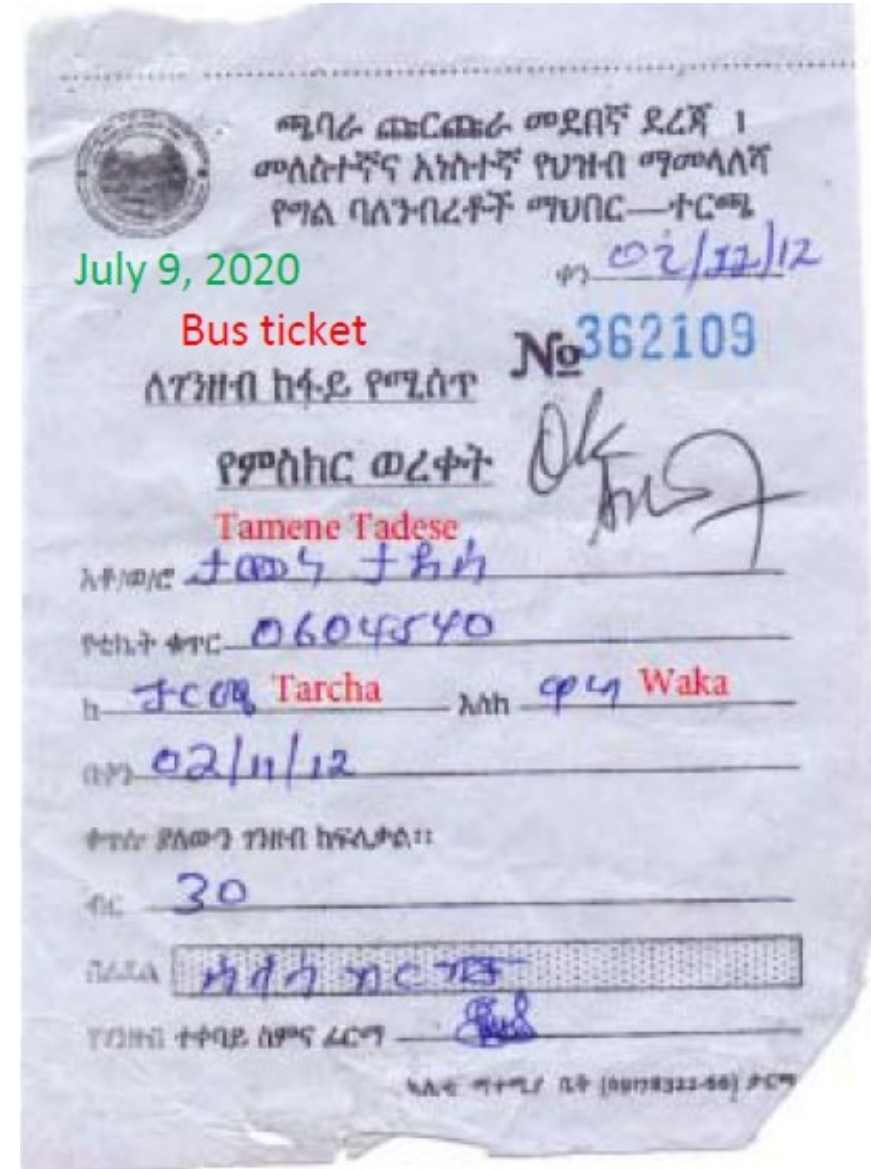 ጫባራ ጩርጩራ መደበኛ ደረጃ 1
መለስተኛና አነስተኛ የህዝብ ማመላለሻ
የግል ባለንብረቶች ማህበር—ተርጫ
July 9, 2020
ቀን 02/11/12
Bus ticket
№ 362109
ለገንዘብ ከፋይ የሚሰጥ
የምስክር ወረቀት
Ok
Tamene Tadese
አቶ/ወ/ሮ ታመነ ታደሰ
የቲኬት ቁጥር 0604540
ከ ታርጫ Tarcha እስከ ዋካ Waka
በቀን 02/11/12
ቀጥሎ ያለውን ገንዘብ ከፍለዋል።
ብር 30
በፊደል ሰላሳ ብር
የገንዘብ ተቀባይ ስምና ፊርማ
ማተሚያ ቤት